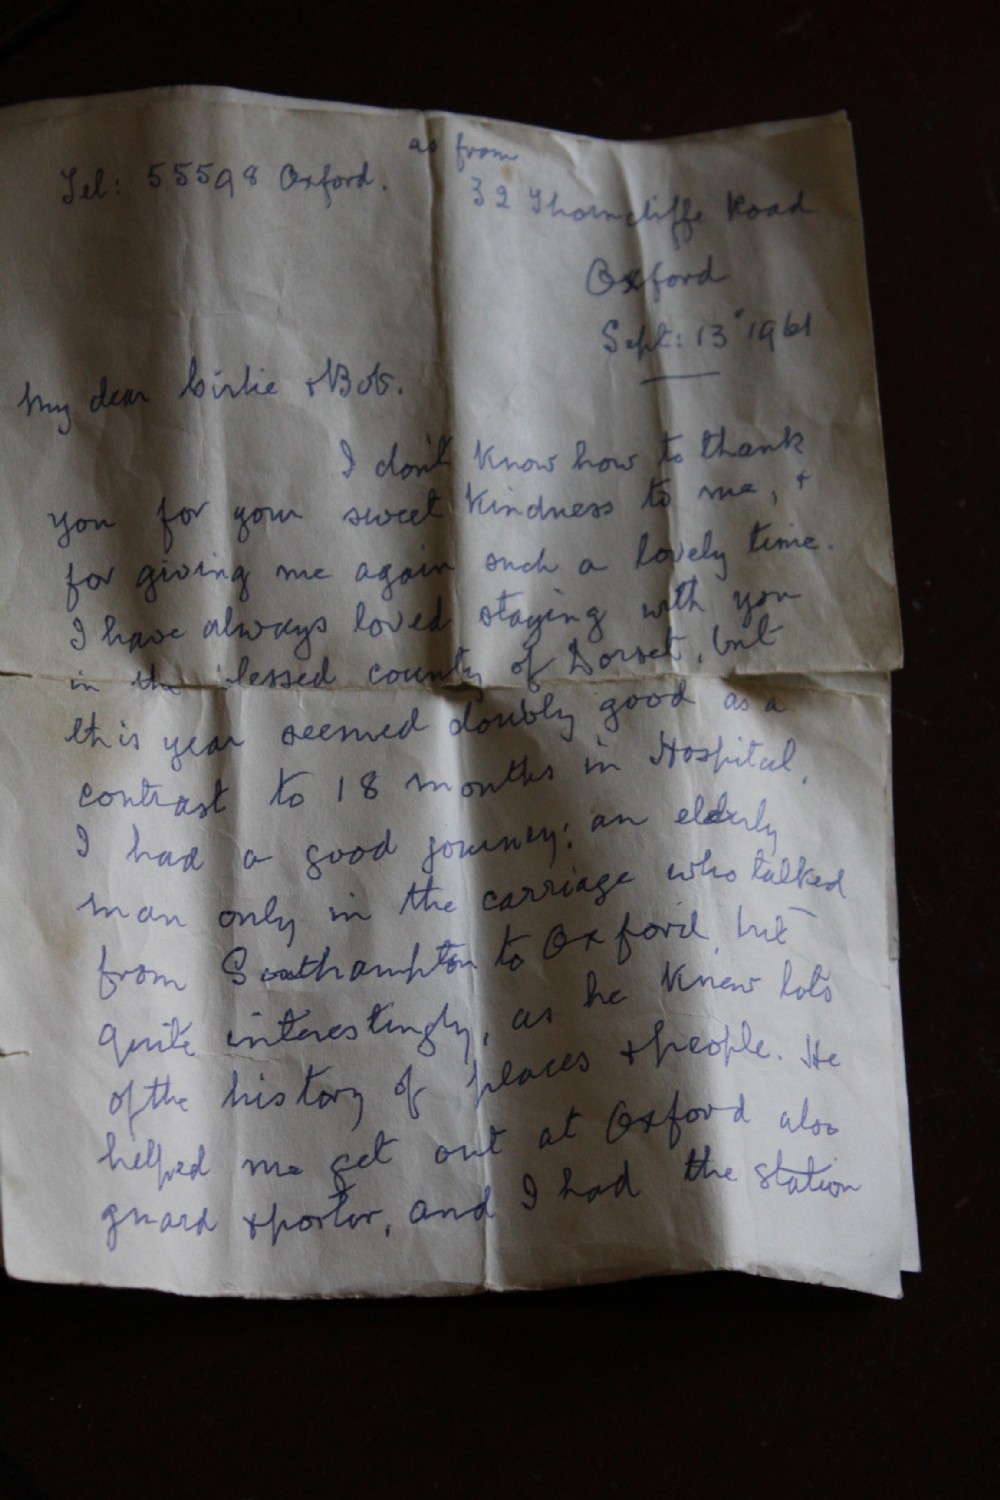 as from
Tel: 55598 Oxford.
32 Thorncliffe Road
Oxford
Sept: 13" 1961
My dear Girlie & Bob.
I don't know how to thank
you for your sweet kindness to me, &
for giving me again such a lovely time.
I have always loved staying with you
in the blessed county of Dorset, but
this year seemed doubly good as a
contrast to 18 months in Hospital.
I had a good journey; an elderly
man only in the carriage who talked
from Southampton to Oxford, but
quite interestingly, as he knew lots
of the history of places & people. He
helped me get out at Oxford also
guard & porter, and I had the station